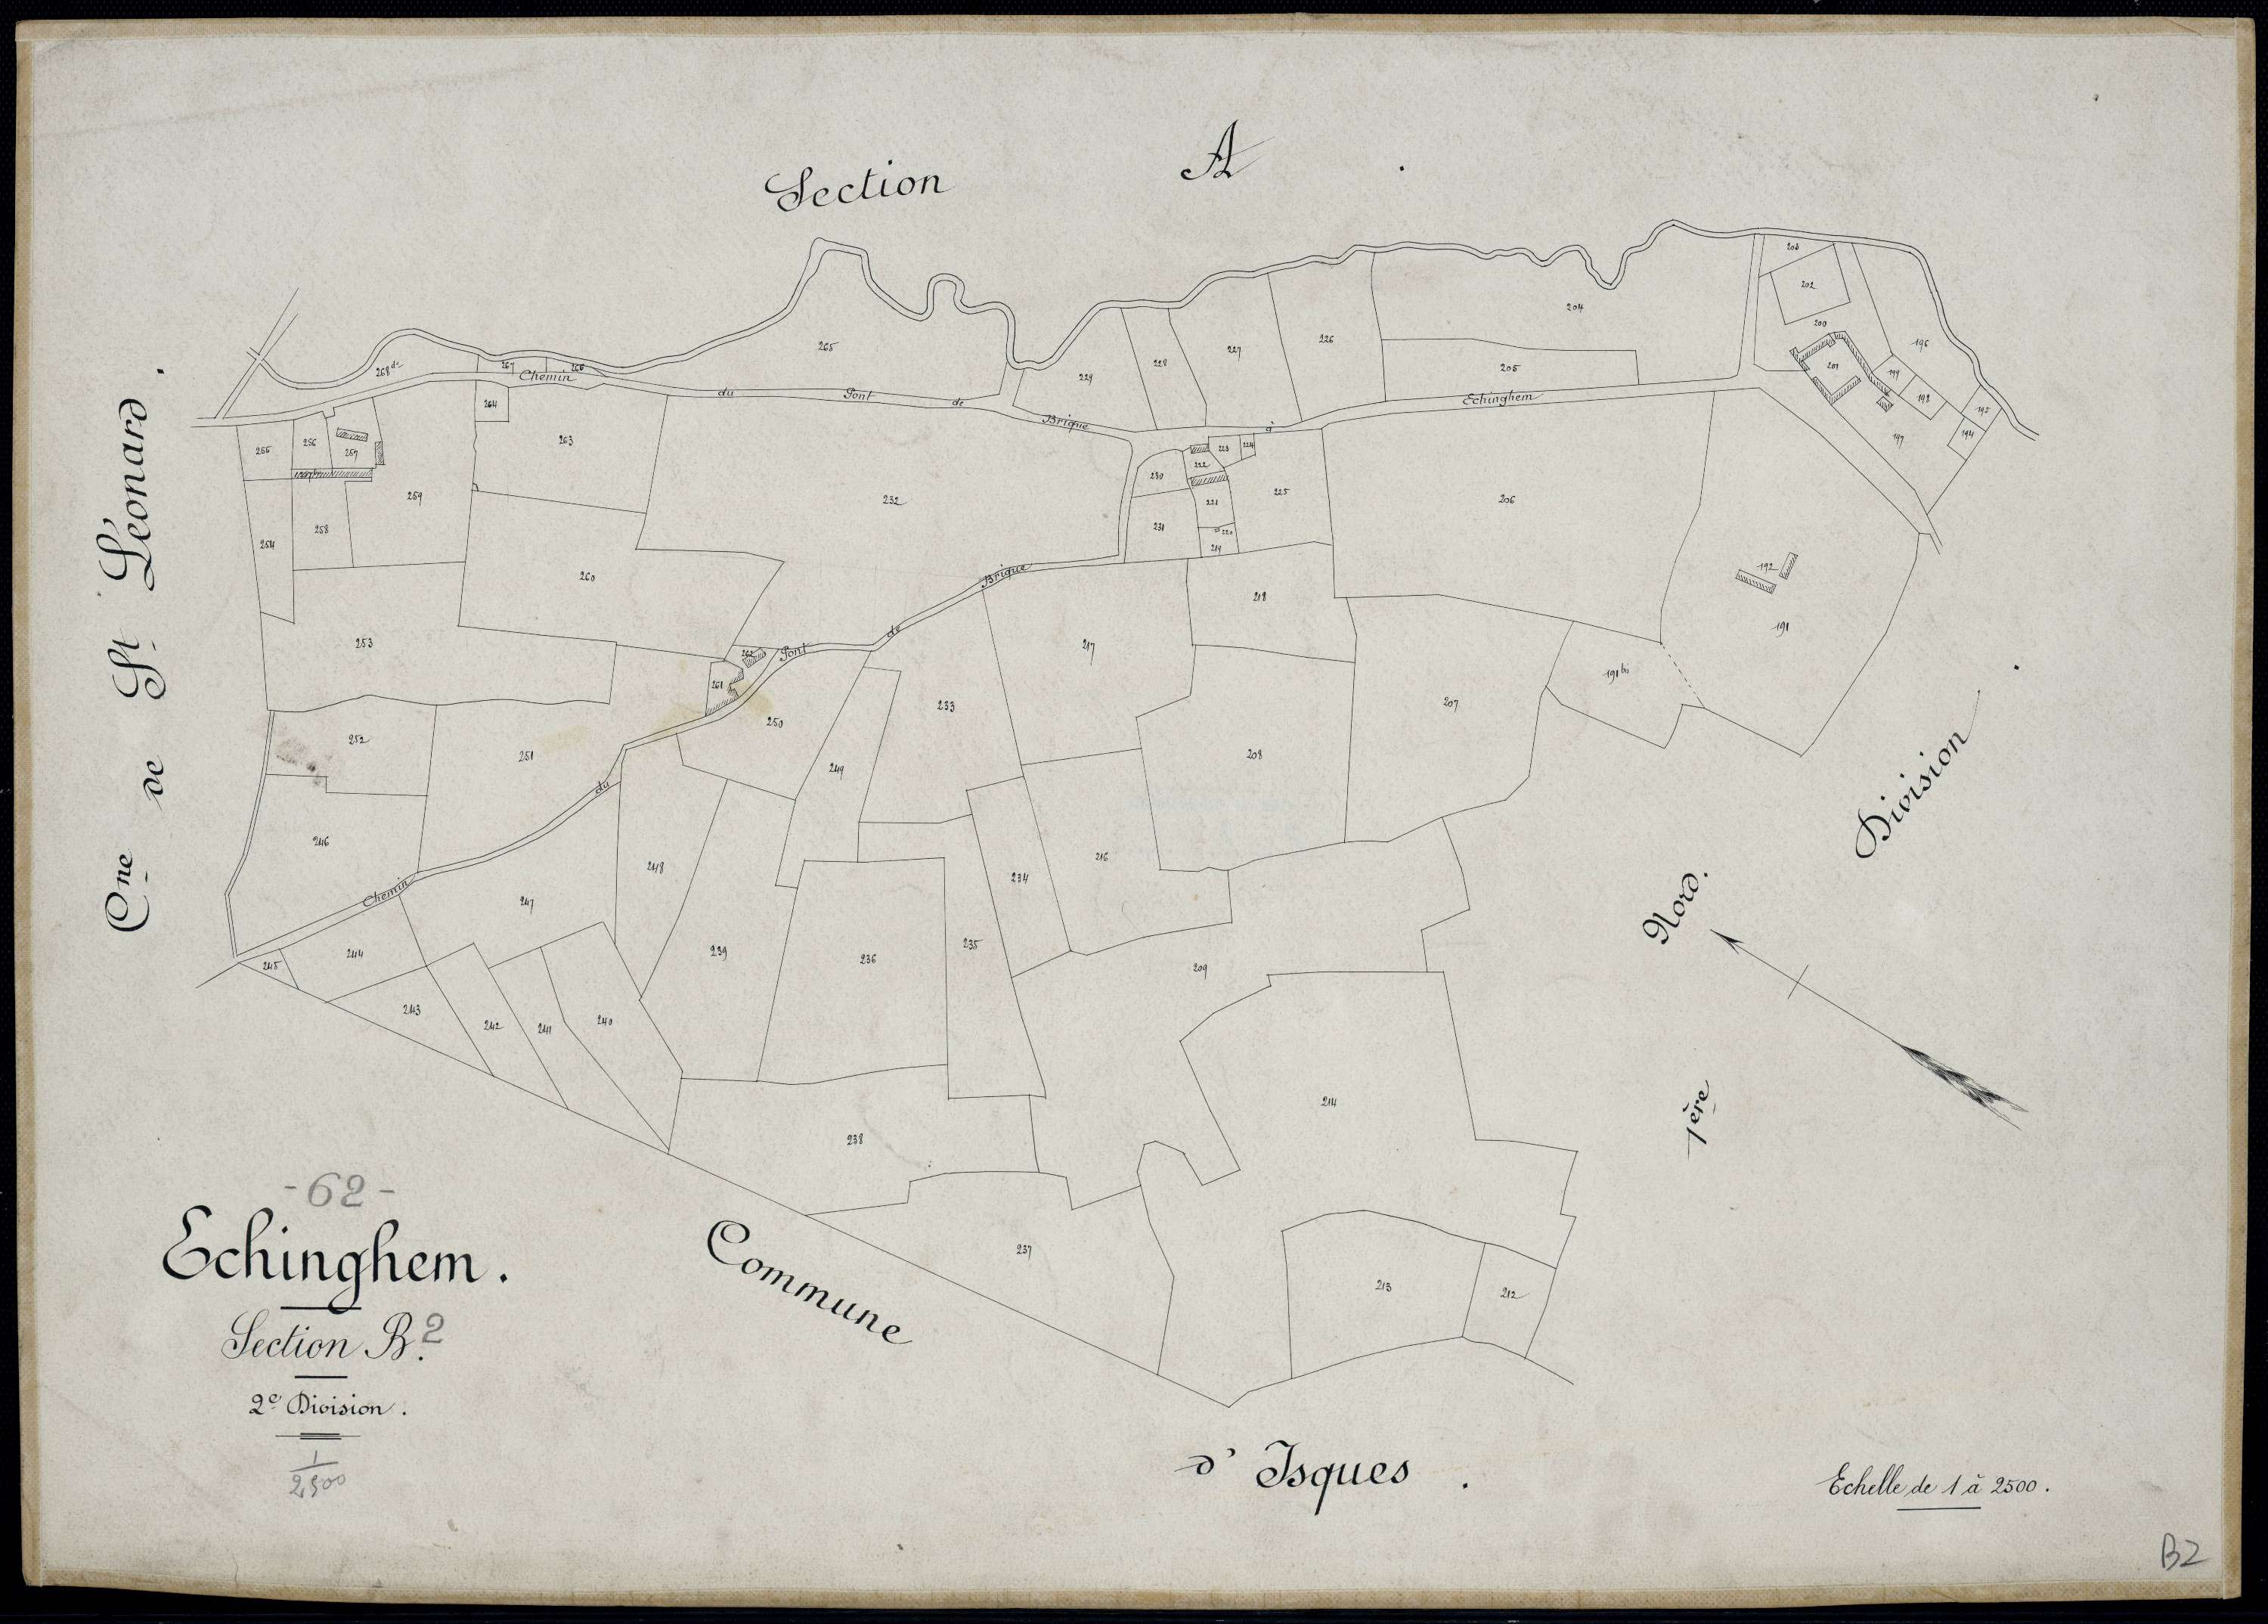 Section A.
Cne de St Léonard.
203
202
204
200
196
201
199
198
195
194
197
205
226
227
228
229
265
266
267
268 dr
Chemin du Pont de Brique à Echinghem
264
263
255
256
257
259
258
254
232
230
222
223
224
225
221
220
219
231
206
192
191
191 bis
260
253
218
217
262
261
Chemin du Pont de Brique
250
233
207
208
252
251
249
246
248
216
234
247
244
245
239
236
235
209
243
242
241
240
214
238
237
213
212
1ère Division.
Nord.
Commune d'Isques.
- 62 -
Echinghem.
Section B.2
2e Division.
1
2500
Echelle de 1 à 2500.
B2